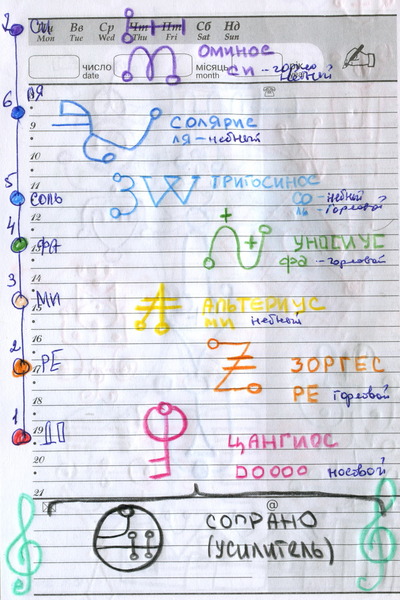 Пн Вв Ср Чт Пт Сб Нд
Mon Tue Wed Thu Fri Sat Sun
7 СИ
ОМИНОС
число
date
місяць
month
СИ - горлово
небный
6 ЛЯ
9
СОЛЯРИС
10
ЛЯ - небный
11
5
ТРИГОСИНОС
СОЛЬ
СО - небный
ЛЬ - горловой
12
4
13
ФА
УНОСИУС
ФА - горловой
14
3
МИ
15
АЛЬТЕРИУС
МИ небный
16
2
РЕ
17
ЗОРГЕС
18
РЕ горловой
1
19
ДО
ЦАНГИОС
20
DOOOO носовой
21
@
СОПРАНО
(УСИЛИТЕЛЬ)